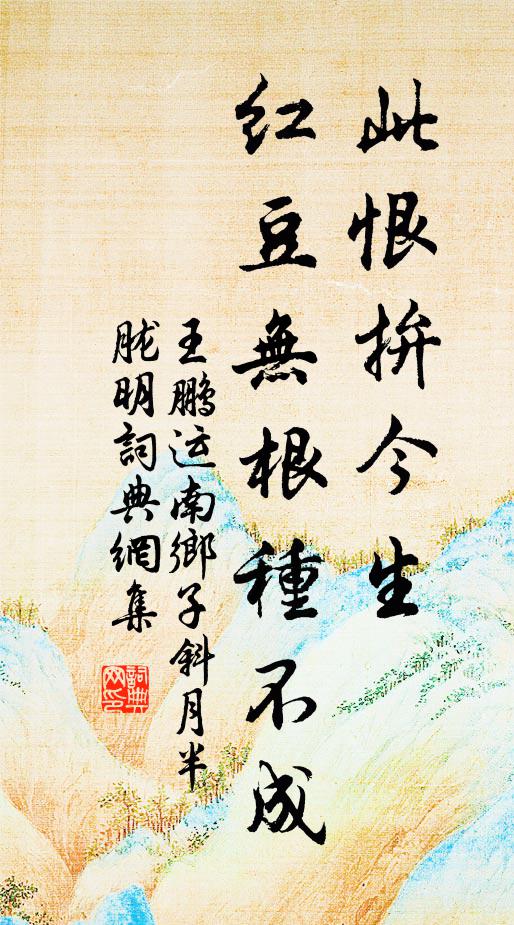 此恨拚今生
紅豆無根種不成
王鵬运南鄉子斜月半
胧明詞典網集
詞典
网印